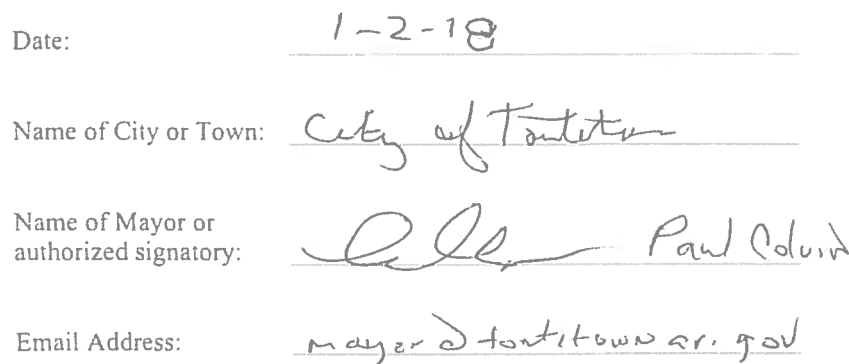 Date: 1-2-18
Name of City or Town: City of Tontitown
Name of Mayor or
authorized signatory: Paul Colvin
Email Address: mayor@tontitownar.gov